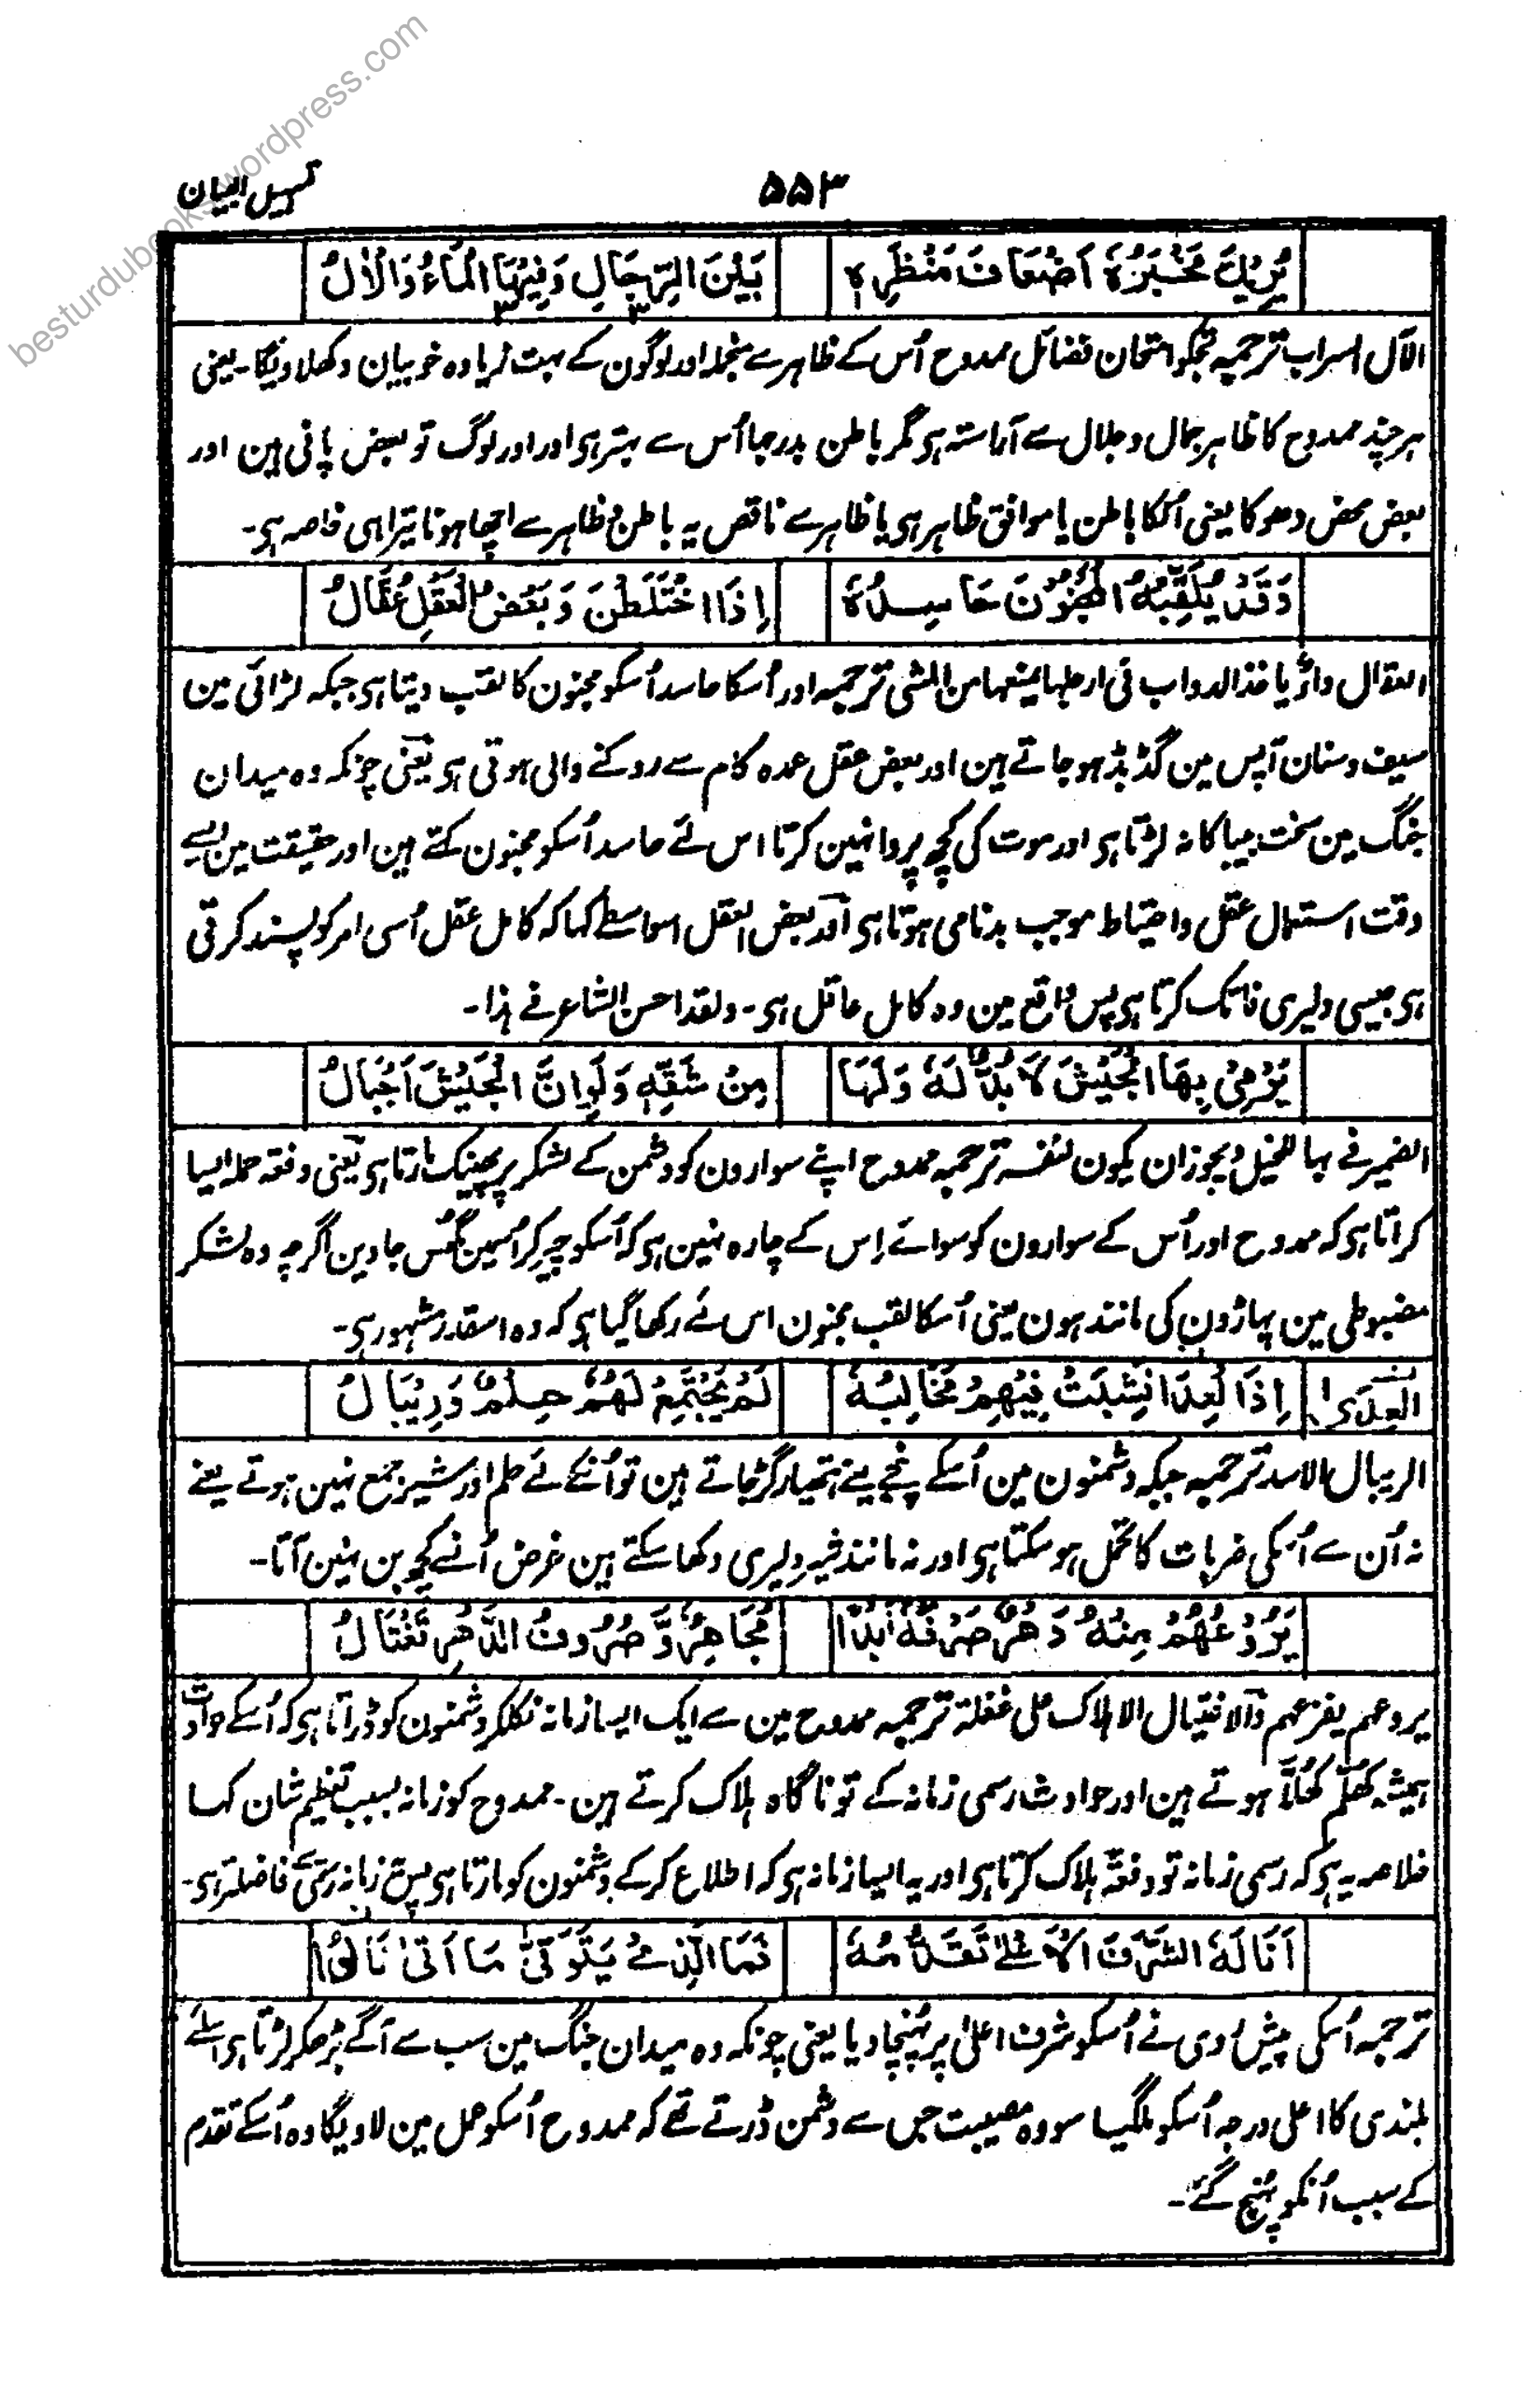 besturdubooks.wordpress.com
۵۵۳ تسہیل البیان
يُرِيكَ مَخْبَرُهٗ اَضْعَافَ مَنْظَرِهٖ بَيْنَ الرِّجَالِ وَفِيْهَا الْمَاءُ وَالْاٰلُ
الآل السراب ترجمہ تجکو امتحان فضائل ممدوح اُس کے ظاہر سے منجملہ اور لوگون کے بہت زیادہ خوبیان دکھلاویگا۔ یعنی
ہر چند ممدوح کا ظاہر جمال و جلال سے آراستہ ہی مگر باطن بدرجہا اُس سے بہتر ہی اور اور لوگ تو بعض پانی ہین اور
بعض محض دھوکا یعنی اُنکا باطن یا موافق ظاہر ہی یا ظاہر سے ناقص یہ باطن ظاہر سے اچھا ہونا تیرا ہی خاصہ ہی۔
وَقَدْ يُلَقِّبُهُ الْمَجْنُوْنَ حَاسِدُهٗ اِذَا اخْتَلَطْنَ وَبَعْضُ الْعَقْلِ عُقَّالُ
العقال داءٌ یاخذ الدواب فی ارجلہا یمنعہا من المشی ترجمہ اور اُسکا حاسد اُسکو مجنون کا لقب دیتا ہی جبکہ لڑائی مین
سیف و سنان آپس مین گڈبڈ ہو جاتے ہین اور بعض عقل عمدہ کام سے روکنے والی ہوتی ہی یعنی چونکہ وہ میدان
جنگ مین سخت بیباکانہ لڑتا ہی اور موت کی کچھ پروا نہین کرتا اس لئے حاسد اُسکو مجنون کہتے ہین اور حقیقت مین ایسے
وقت استعمال عقل و احتیاط موجب بدنامی ہوتا ہی اور بعض العقل اسواسطے کہا کہ کامل عقل اُسی امر کو پسند کرتی
ہی جیسی دلیری فاتک کرتا ہی پس واقع مین وہ کامل عاقل ہی۔ ولقد احسن الشاعر فے ہذا۔
يَرْمِيْ بِهَا الْجَيْشَ لَا بُدٌّ لَهٗ وَلَهَا مِنْ شَقِّهٖ وَلَوْ اَنَّ الْجَيْشَ اَجْبَالُ
الضمیر فے بہا للخیل و یجوز ان یکون لنفسہ ترجمہ ممدوح اپنے سوارون کو دشمن کے لشکر پر پھینک مارتا ہی یعنی دفعۃ حملہ ایسا
کراتا ہی کہ ممدوح اور اُس کے سوارون کو سوائے اِس کے چارہ نہین ہی کہ اُسکو چیر کر اُسمین گھس جاوین اگرچہ وہ لشکر
مضبوطی مین پہاڑون کی مانند ہون یعنی اُسکا لقب مجنون اس لئے رکھا گیا ہی کہ وہ اسقدر مشہور ہی۔
اِذَا الْعِدَا نَشِبَتْ فِيْهِمْ مَخَالِبُهٗ لَمْ يَجْتَمِعْ لَهُمْ حِلْمٌ وَرِيْبَالُ
العِدَى
الریبال الاسد ترجمہ جبکہ دشمنون مین اُسکے پنجے یعنے ہتھیار گڑجاتے ہین تو اُنکے لئے حلم اور شیر جمع نہین ہوتے یعنے
نہ اُن سے اُسکی ضربات کا تحمل ہو سکتا ہی اور نہ مانند شیر دلیری دکھا سکتے ہین غرض اُنسے کچھ بن نہین آتا۔
يَرُوْعُهُمْ مِنْهُ دَهْرٌ صَرْفُهٗ اَبَدًا مُجَاهِرٌ وَّصُرُوْفُ الدَّهْرِ تَغْتَالُ
یروعہم یفزعہم والاغتیال الاہلاک علی غفلۃ ترجمہ ممدوح مین سے ایک ایسا زمانہ نکلکر دشمنون کو ڈراتا ہی کہ اُسکے حوادث
ہمیشہ کُھلّم کُھلّا ہوتے ہین اور حوادث رسمی زمانہ کے تو ناگاہ ہلاک کرتے ہین۔ ممدوح کو زمانہ بسبب تعظیم شان کہا
خلاصہ یہ ہی کہ رسمی زمانہ تو دفعۃً ہلاک کرتا ہی اور یہ ایسا زمانہ ہی کہ اطلاع کر کے دشمنون کو مارتا ہی پس زمانہ رسمی سے فاضلتر ہی۔
اَنَالَهُ الشَّرَفَ الْاَعْلٰے تَقَدُّمُهٗ فَمَا الَّذِيْ يَتَوَقّٰى مَا اَتٰى نَالُوْا
ترجمہ اُسکی پیش رَوی نے اُسکو شرف اعلیٰ پر پہنچا دیا یعنی چونکہ وہ میدان جنگ مین سب سے آگے بڑھکر لڑتا ہی اسلئے
بلندی کا اعلی درجہ اُسکو ملگیا سو وہ مصیبت جس سے دشمن ڈرتے تھے کہ ممدوح اُسکو عمل مین لاویگا وہ اُسکے تقدم
کے سبب اُنکو پہنچ گئے۔